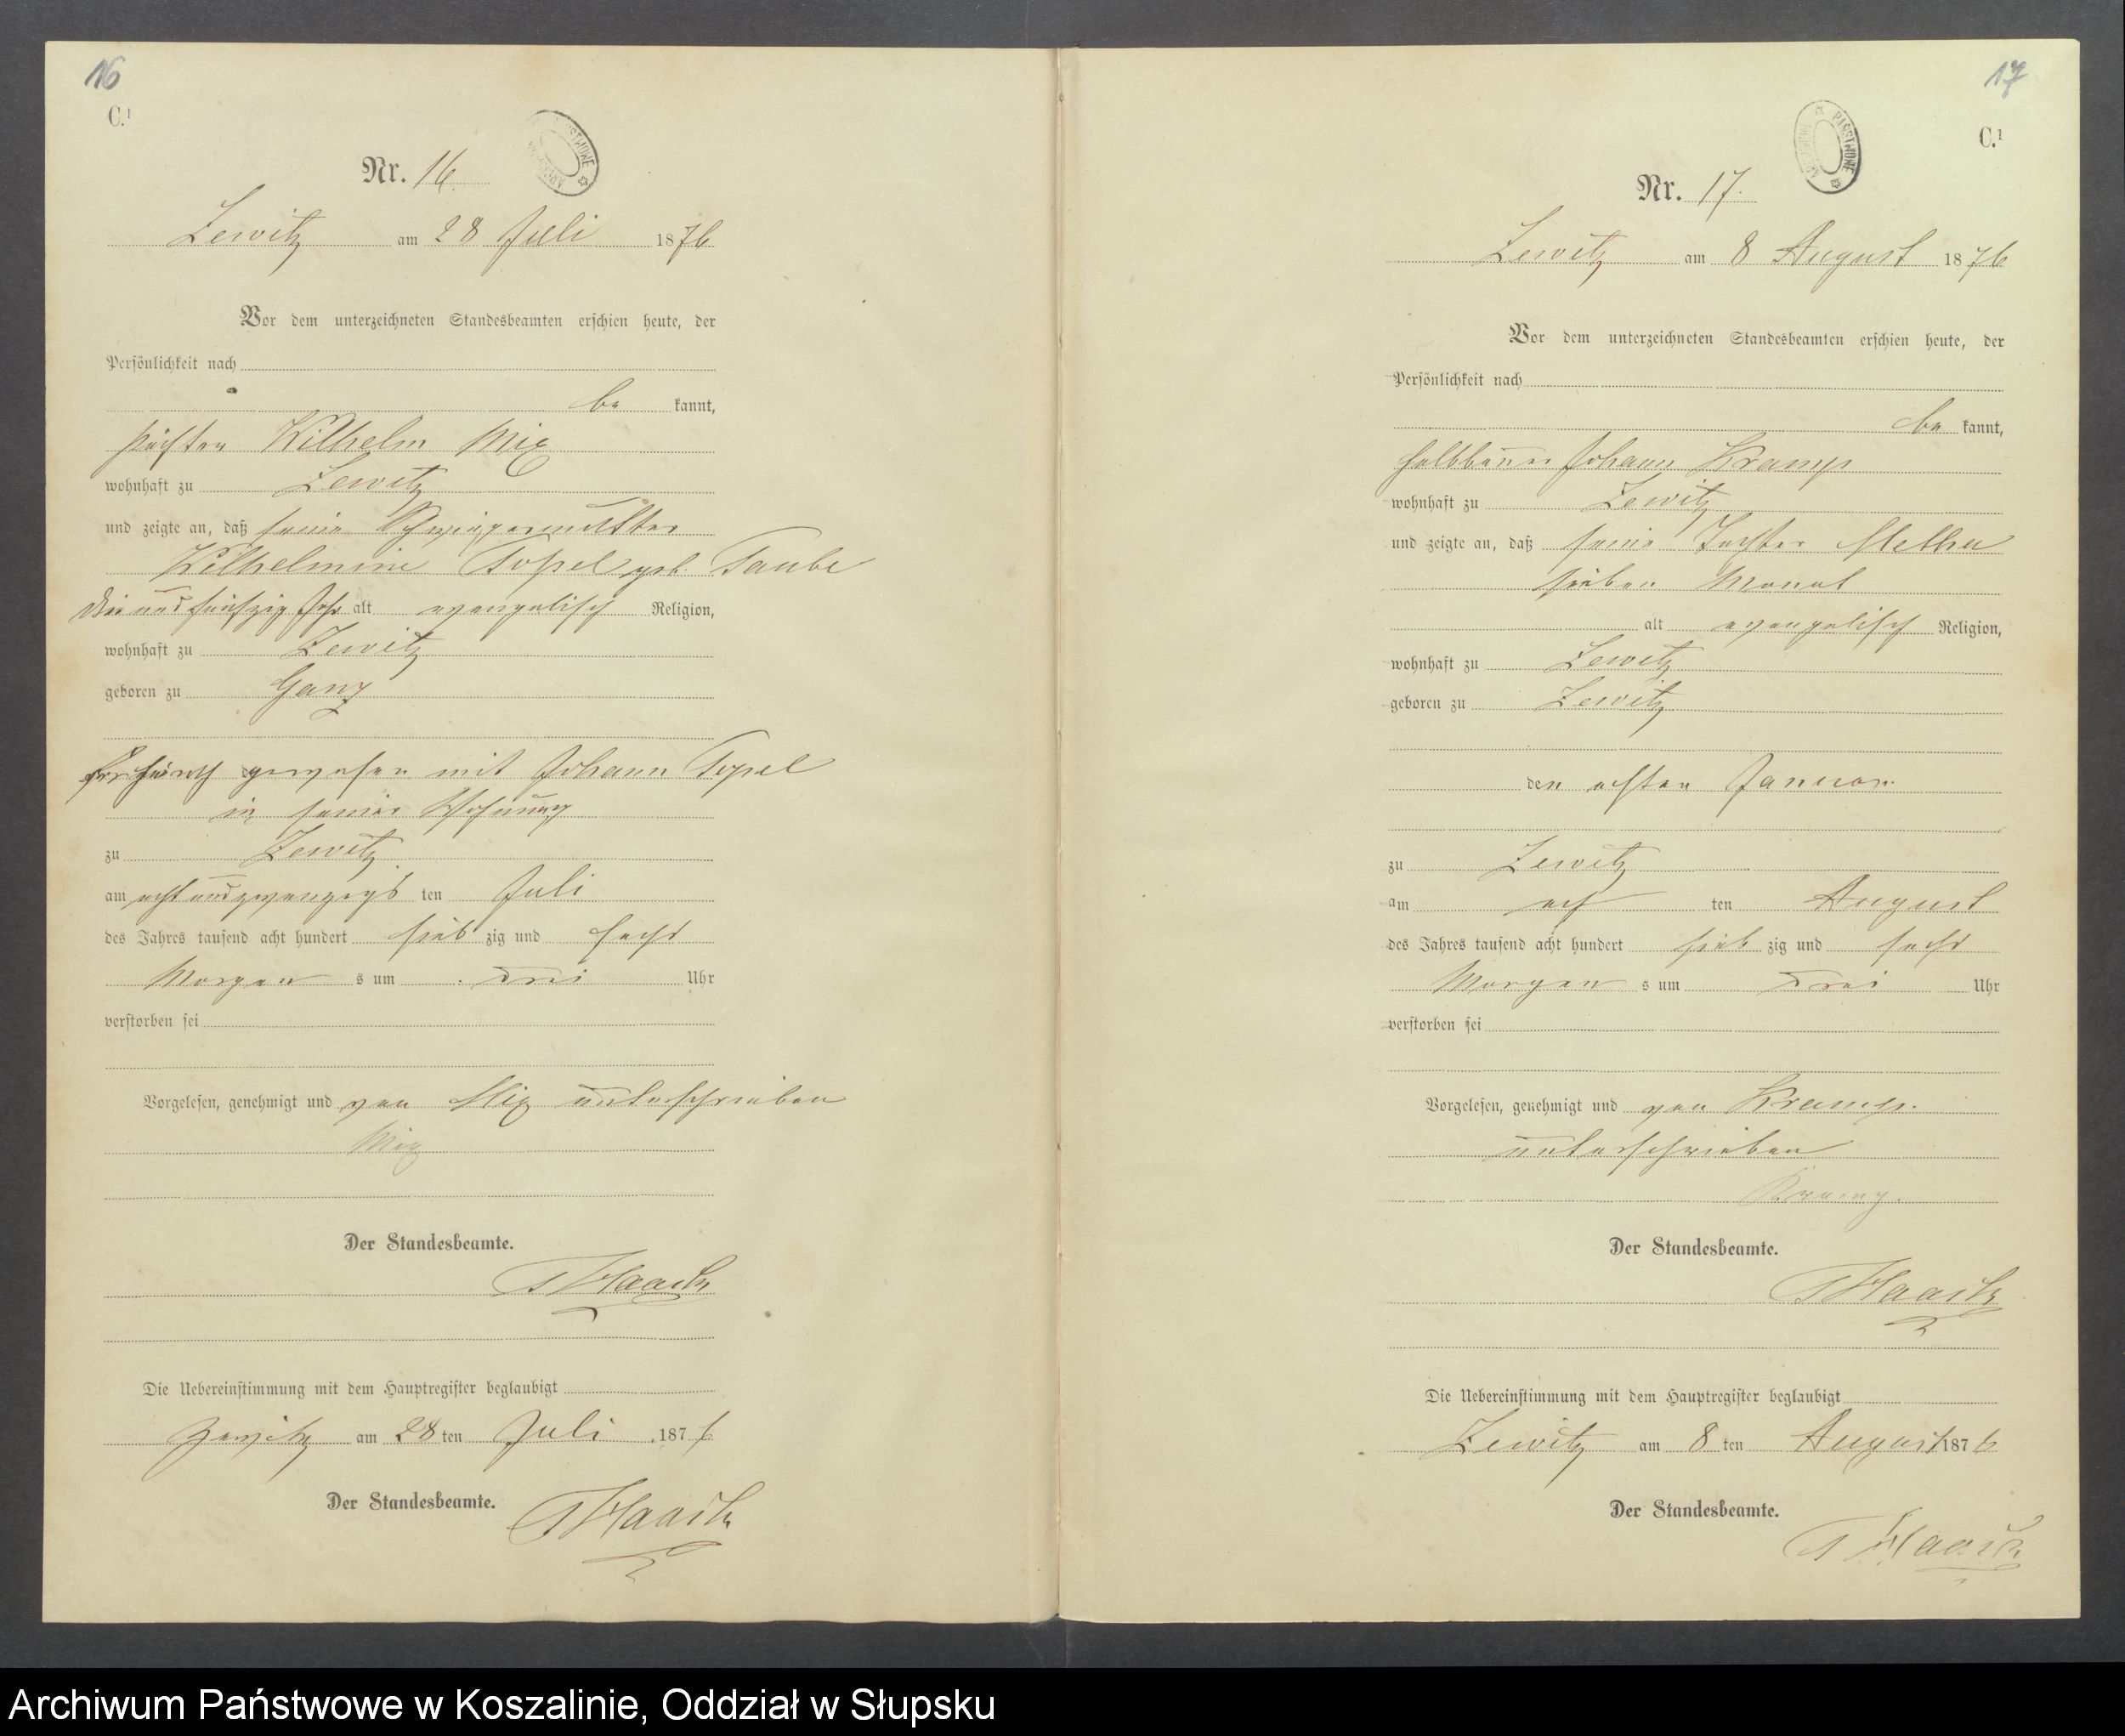 16
C.1
Nr. 16.
Zewitz am 28 Juli 1876
Vor dem unterzeichneten Standesbeamten erschien heute, der
Persönlichkeit nach
be kannt,
Pächter Wilhelm Mix
wohnhaft zu Zewitz
und zeigte an, daß seine Schwiegermutter
Wilhelmine Topel geb. Taube
drei und fünfzig Jahr alt evangelisch Religion,
wohnhaft zu Zewitz
geboren zu Ganz
gewesen mit Johann Topel
in seiner Wohnung
zu Zewitz
am acht und zwanzigs ten Juli
des Jahres tausend acht hundert sieb zig und sechs
Morgen s um drei Uhr
verstorben sei
Vorgelesen, genehmigt und von Mix unterschrieben
Mix
Der Standesbeamte.
Haack
Die Uebereinstimmung mit dem Hauptregister beglaubigt
Zewitz am 28 ten Juli 1876
Der Standesbeamte.
Haack
17
C.1
ARCHIWUM PAŃSTWOWE
Nr. 17.
Zewitz am 8 August 1876
Vor dem unterzeichneten Standesbeamten erschien heute, der
Persönlichkeit nach
be kannt,
Halbbauer Johann Kramp
wohnhaft zu Zewitz
und zeigte an, daß seine Tochter Metha
sieben Monat
alt evangelisch Religion,
wohnhaft zu Zewitz
geboren zu Zewitz
den achten Januar
zu Zewitz
am ach ten August
des Jahres tausend acht hundert sieb zig und sechs
Morgen s um drei Uhr
verstorben sei
Vorgelesen, genehmigt und von Kramp.
unterschrieben
Kramp.
Der Standesbeamte.
Haack
Die Uebereinstimmung mit dem Hauptregister beglaubigt
Zewitz am 8 ten August 1876
Der Standesbeamte.
Haack
Archiwum Państwowe w Koszalinie, Oddział w Słupsku